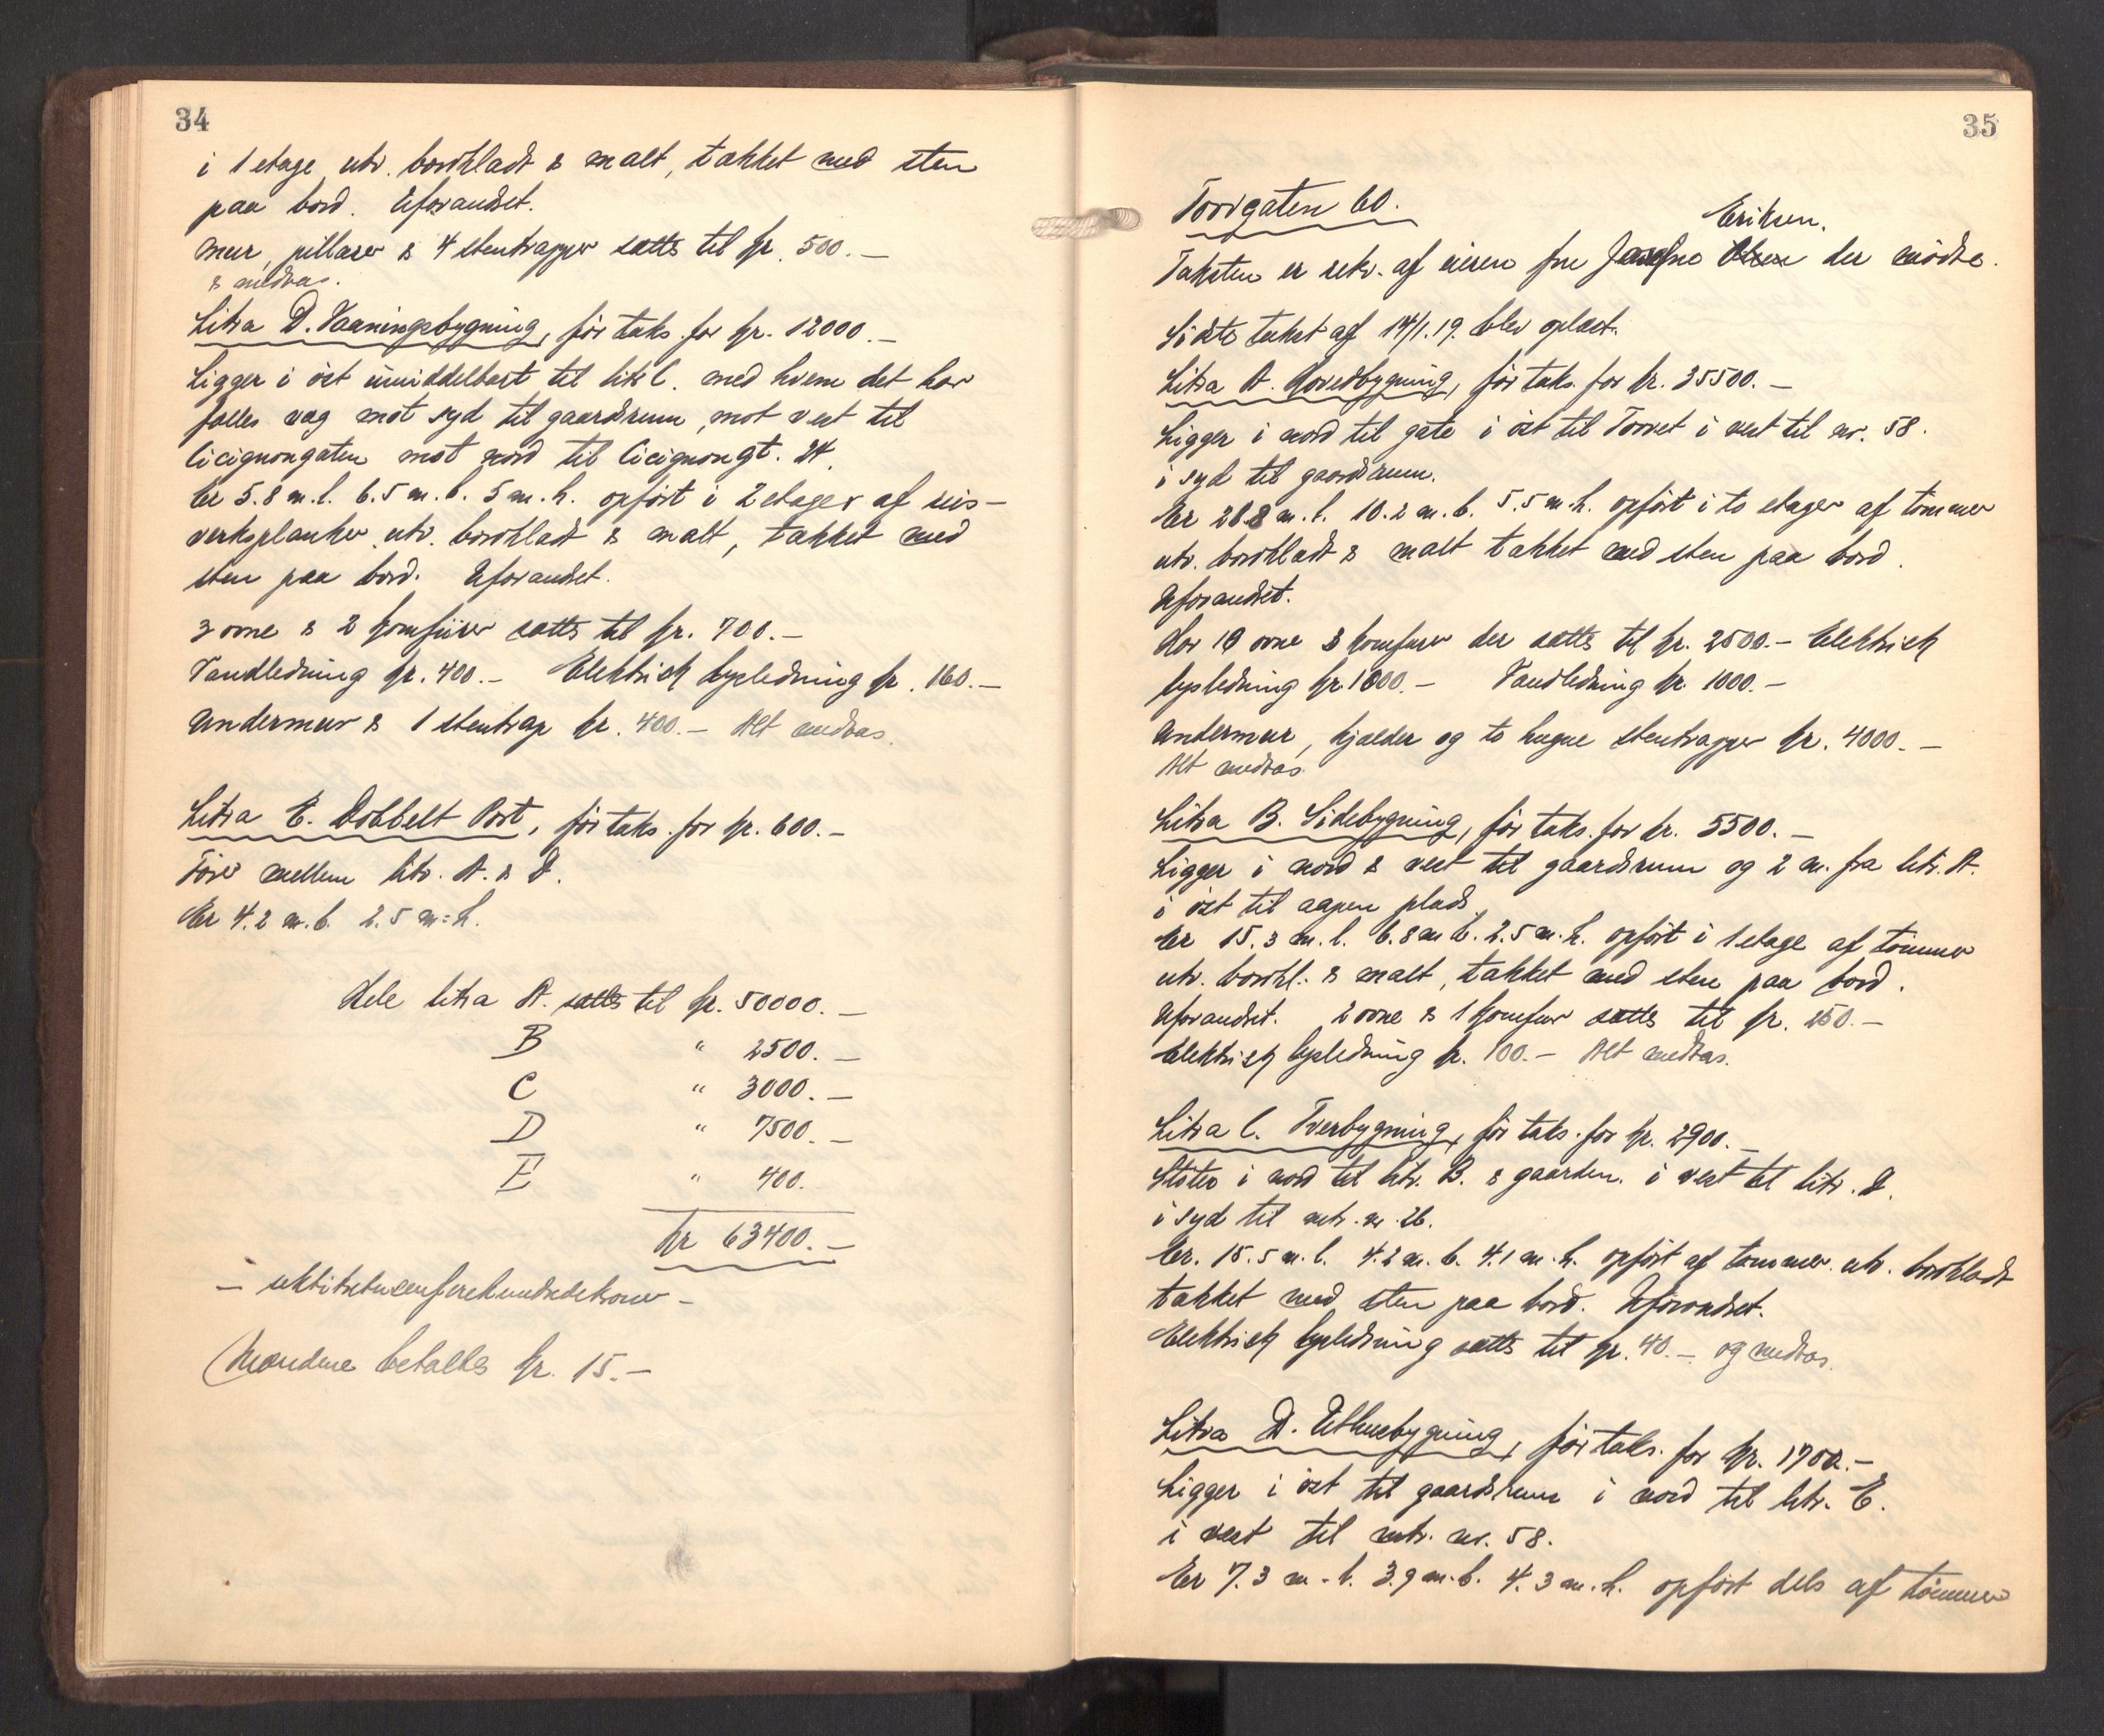 34
i 1 etage, utv. bordklædt & malt, takket med sten
paa bord. Uforandret.
Mur, pillarer & 4 stentrapper sættes til kr. 500.—
& medtas.
Litra D. Vaaningsbygning, før taks. for kr. 12000.—
Ligger i øst umiddelbart til litr C. med hvem det har
fælles væg mot syd til gaardsrum, mot vest til
Cicignongaten mot nord til Cicignongt. 24.
Er 5.8 m.l. 6.5 m.b. 5 m.h. opført i 2 etager af reis-
verksplanker utv. bordklædt & malt, takket med
sten paa bord. Uforandret.
3 ovne & 2 komfurer sættes til kr. 700.—
Vandledning kr. 400.— Elektrisk lysledning kr. 160.—
Undermur & 1 stentrap kr. 400.— Alt medtas.
Litra E. Dobbelt Port, før taks. for kr. 600.—
Fører mellem litr. A. & D.
Er 4.2 m.b. 2.5 m.h.
Hele litra A. sættes til kr. 50000.—
B " 2500.—
C " 3000.—
D " 7500.—
E " 400.
kr 63400.—
— sekstitretusenfirehundredekroner —
Mændene betaltes kr. 15.—
35
Torvgaten 60.
Eriksen.
Taksten er rekv. af eieren fru Josefine Olsen der mødte.
Sidste takst af 14/1.19. blev oplæst.
Litra A. Hovedbygning, før taks. for kr. 35500.—
Ligger i nord til gate i øst til Torvet i vest til nr. 58.
i syd til gaardsrum.
Er 28.8 m.l. 10.2 m.b. 5.5 m.h. opført i to etager af tømmer
utv. bordklædt & malt takket med sten paa bord.
Uforandret.
Har 19 ovne 3 komfurer der sættes til kr. 2500.— Elektrisk
lysledning kr. 1000.— Vandledning kr. 1000.—
Undermur, kjælder og to hugne stentrapper kr. 4000.—
Alt medtas.
Litra B. Sidebygning, før taks. for kr. 5500.—
Ligger i nord & vest til gaardsrum og 2 m. fra litr. A.
i øst til aapen plads.
Er 15.3 m.l. 6.8 m b. 2.5 m.h. opført i 1 etage af tømmer
utv. bordkl. & malt, takket med sten paa bord.
Uforandret. 2 ovne & 1 komfur sættes til kr. 250.—
Elektrisk lysledning kr. 100.— Alt medtas.
Litra C. Tverbygning, før taks. for kr. 2900.—
Støter i nord til litr. B. & gaarden. i vest til litr. D.
i syd til mtr. nr. 26.
Er. 15.5 m.l. 4.2 m.b. 4.1 m.h. opført af tømmer utv. bordklædt
takket med sten paa bord. Uforandret.
Elektrisk lysledning sættes til kr. 40.— og medtas.
Litra D. Uthusbygning, før taks. for kr. 1700.—
Ligger i øst til gaardsrum i nord til litr. E.
i vest til mtr. nr. 58.
Er 7.3 m.l. 3.9 m.b. 4.3 m.h. opført dels af tømmer